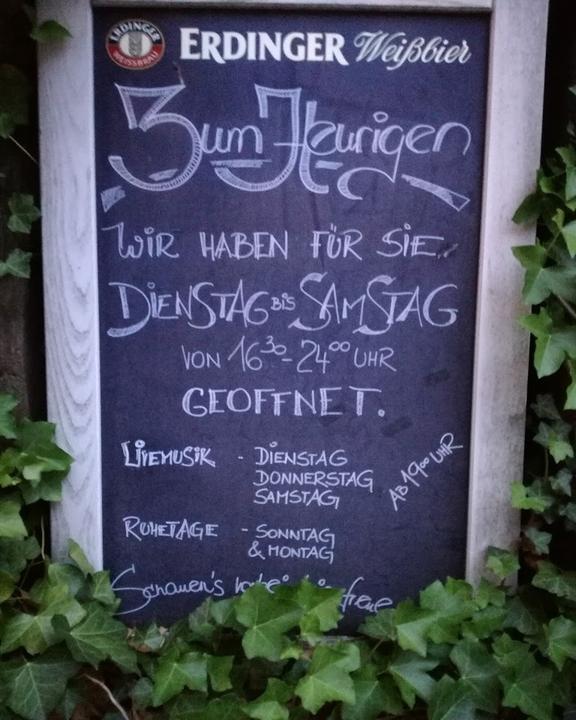 ERDINGER
WEISSBRÄU
ERDINGER Weißbier
Zum Heurigen
WIR HABEN FÜR SIE
DIENSTAG BIS SAMSTAG
VON 16³⁰-24⁰⁰ UHR
GEOFFNET.
LIVEMUSIK - DIENSTAG
DONNERSTAG
SAMSTAG
AB 19⁰⁰ UHR
RUHETAGE - SONNTAG
& MONTAG
Schauen's